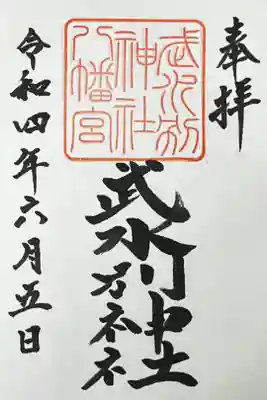 奉拝
武水別
神社
八幡宮
武水別神社
令和四年六月五日